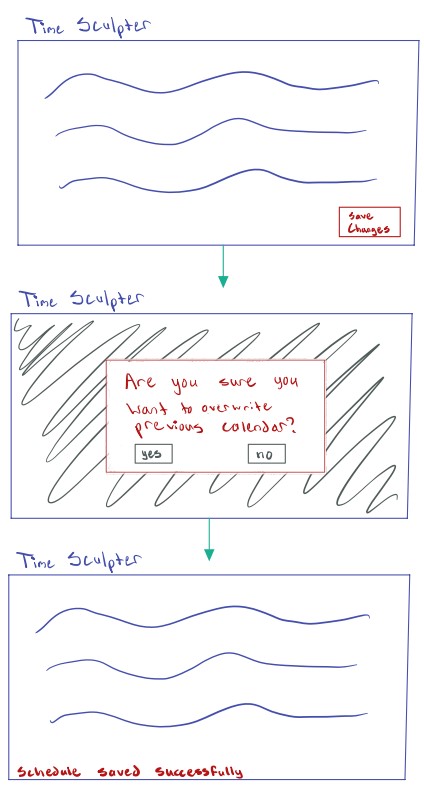 Time Sculpter
Save
Changes
Time Sculpter
Are you sure you
want to overwrite
previous calendar?
yes
no
Time Sculpter
Schedule saved successfully